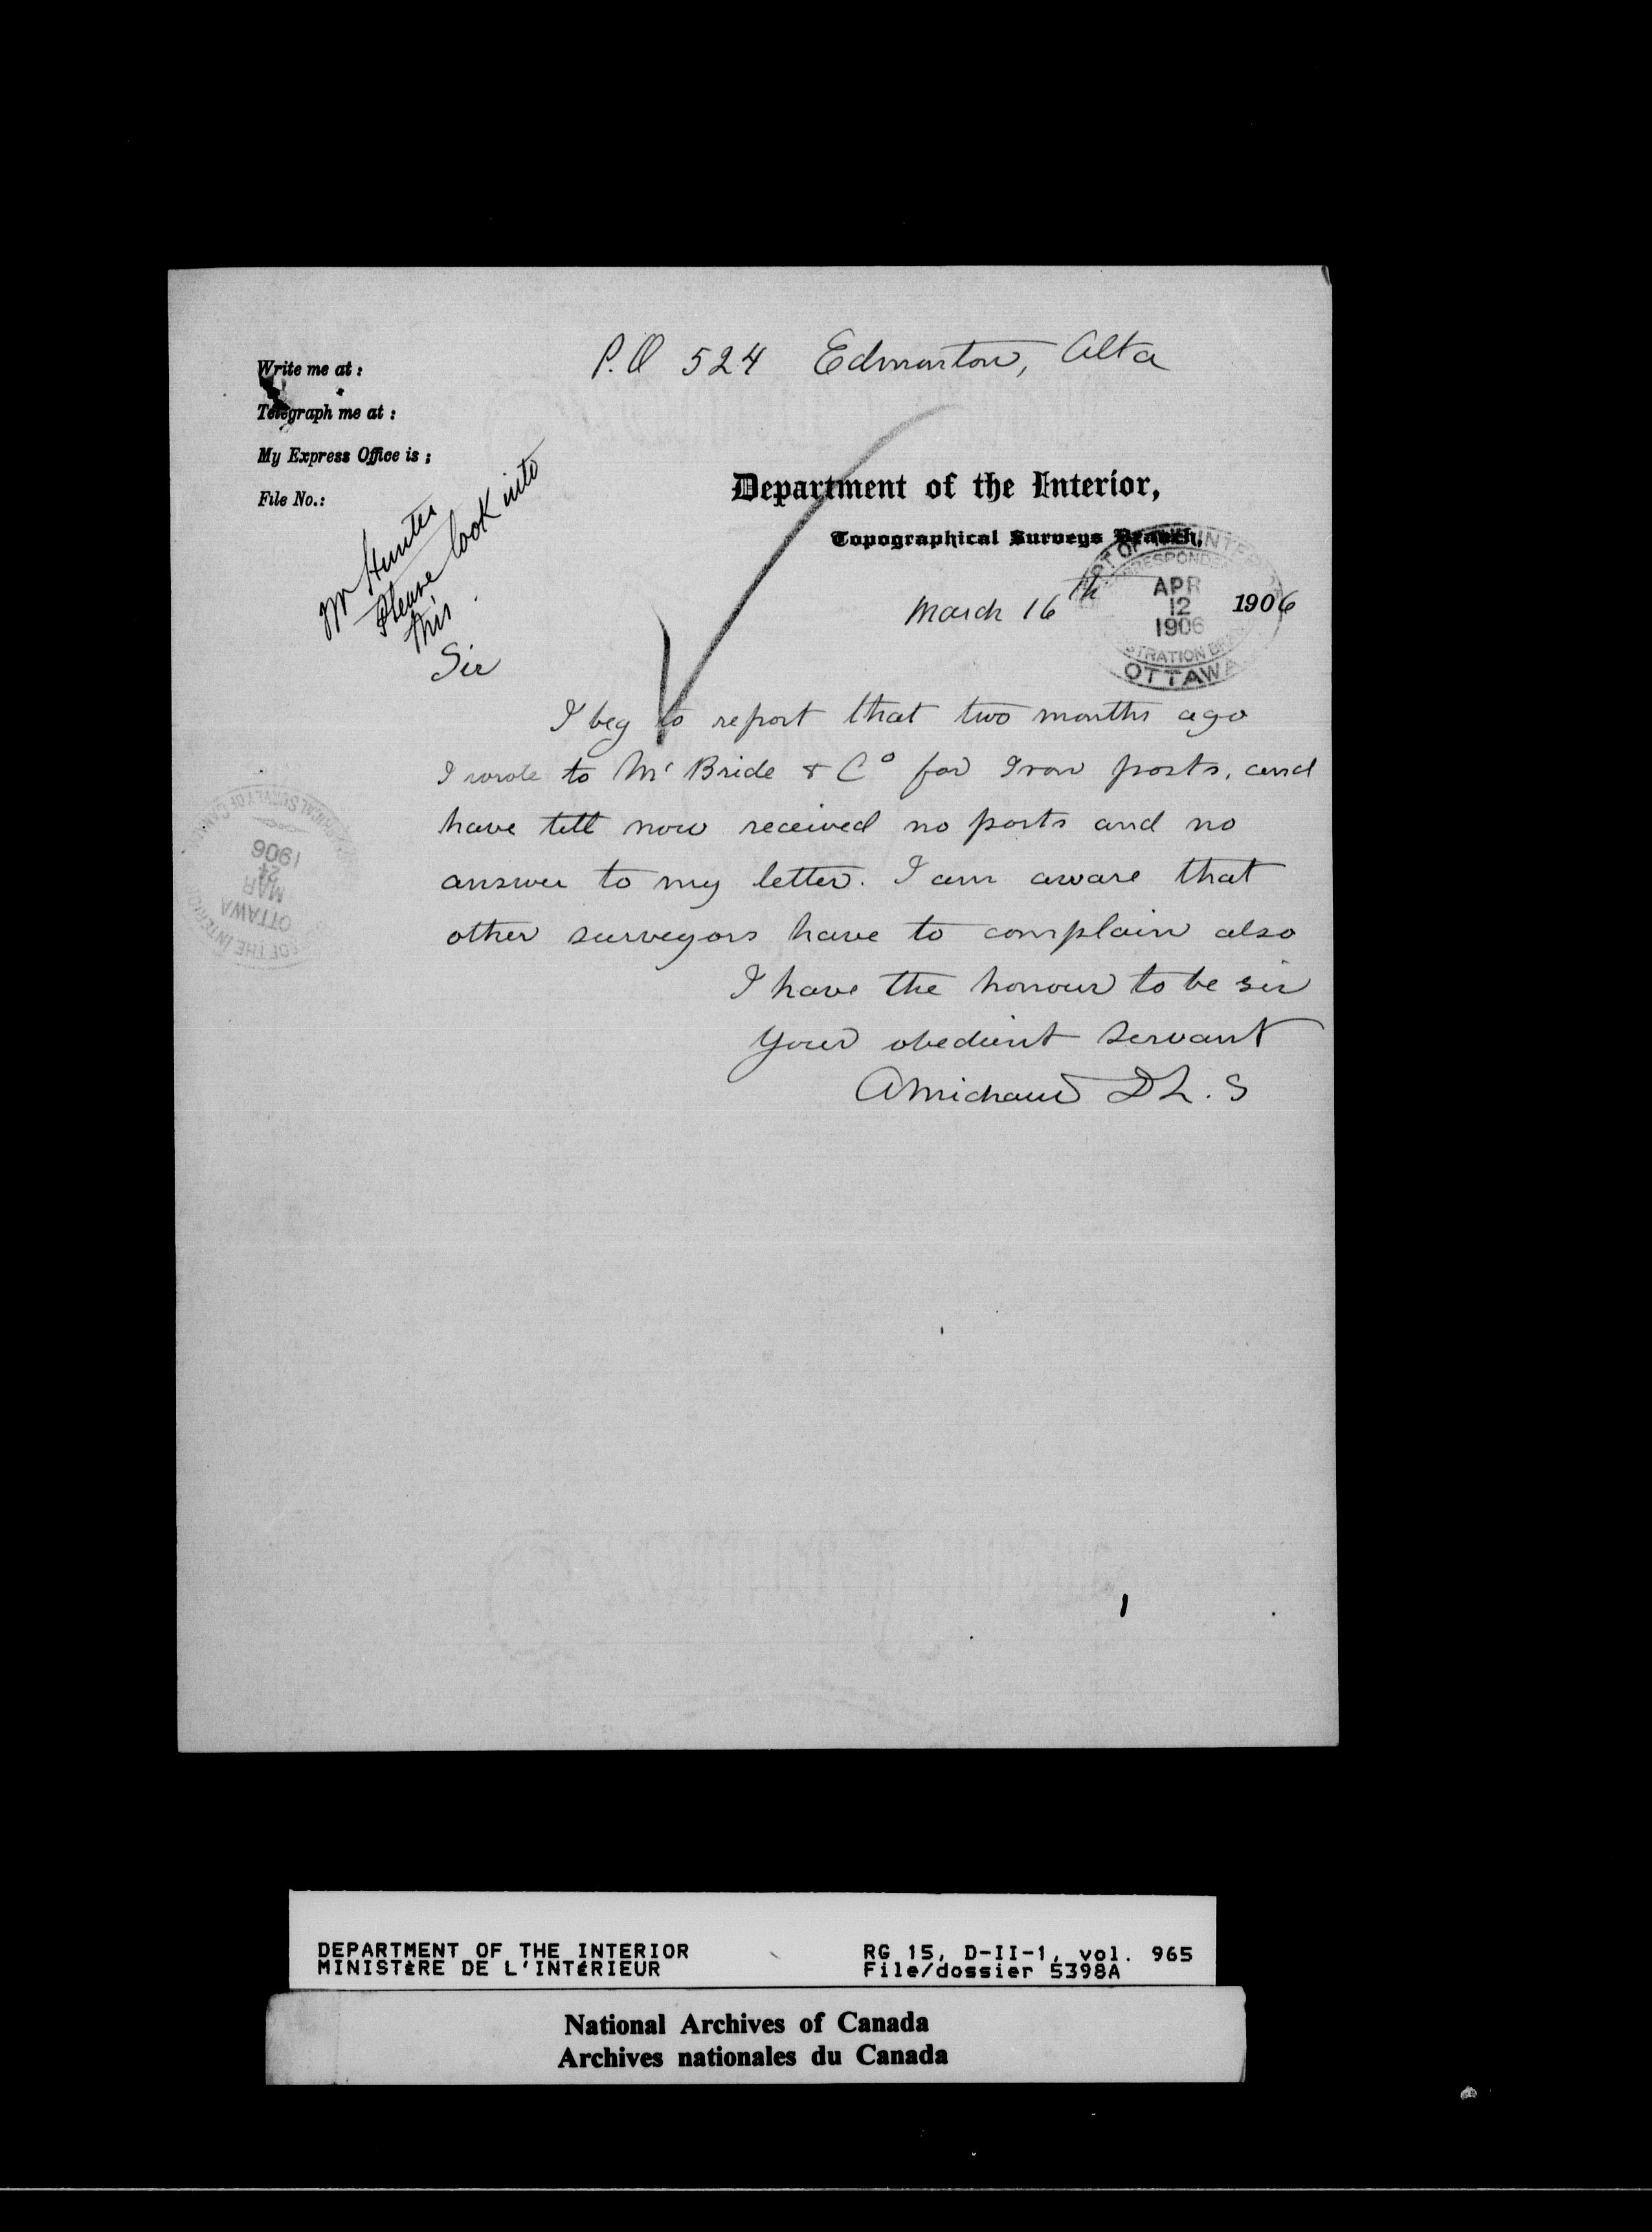 P.O 524 Edmonton, Alta
Write me at :
Telegraph me at :
My Express Office is ;
File No.:
Mr Hunter
Please look into
this.
Department of the Interior,
Topographical Surveys Branch,
March 16th 1906
DEPT OF THE INTERIOR
CORRESPONDENCE
APR
12
1906
REGISTRATION BRANCH
OTTAWA
Sir
I beg to report that two months ago
I wrote to Mc Bride & Co for Iron posts, and
have till now received no posts and no
answer to my letter. I am aware that
other surveyors have to complain also
I have the honour to be sir
Your obedient servant
AMichaud D L. S
OF THE INTERIOR
OTTAWA
MAR
24
1906
SURVEY OF CANADA
DEPARTMENT OF THE INTERIOR
MINISTÈRE DE L'INTÉRIEUR
RG 15, D-II-1, vol. 965
File/dossier 5398A
National Archives of Canada
Archives nationales du Canada